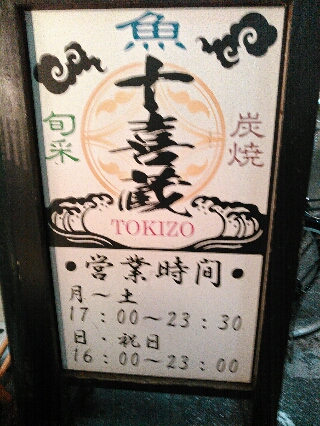 魚
旬采
炭焼
十喜蔵
TOKIZO
●営業時間●
月～土
17：00～23：30
日・祝日
16：00～23：00